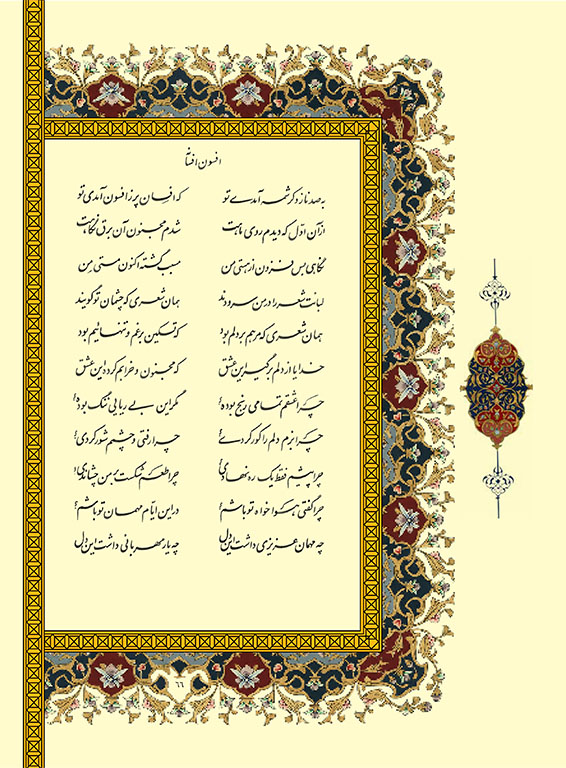 افسون افشا
به صد ناز و کرشمه آمدی تو که افسان پر ز افسون آمدی تو
از آن اول که دیدم روی ماهت شدم مجنون آن برق نگاهت
نگاهی بس فزون از هستی من سبب گشته اکنون مستی من
لبانت شعر را در من سرودند همان شعری که چشمان تو گویند
همان شعری که مرهم بر دلم بود که تسکین بر غم و تنهائیم بود
خدایا از دلم برگیر این عشق که مجنون و خرابم کرد این عشق
چرا عشقم تمامی رنج بوده؟ مگر این بی ریایی ننگ بوده؟
چرا بزم دلم را کور کردی؟ چرا رفتی و چشمم شور کردی؟
چرا پیشم فقط یک ره نهادی؟ چرا طعم شکست بر من چشاندی؟
چرا گفتی هوا خواه تو باشم؟ در این ایام مهمان تو باشم؟
چه مهمان عزیزی داشت این دل چه یار مهربانی داشت این دل
۶۶